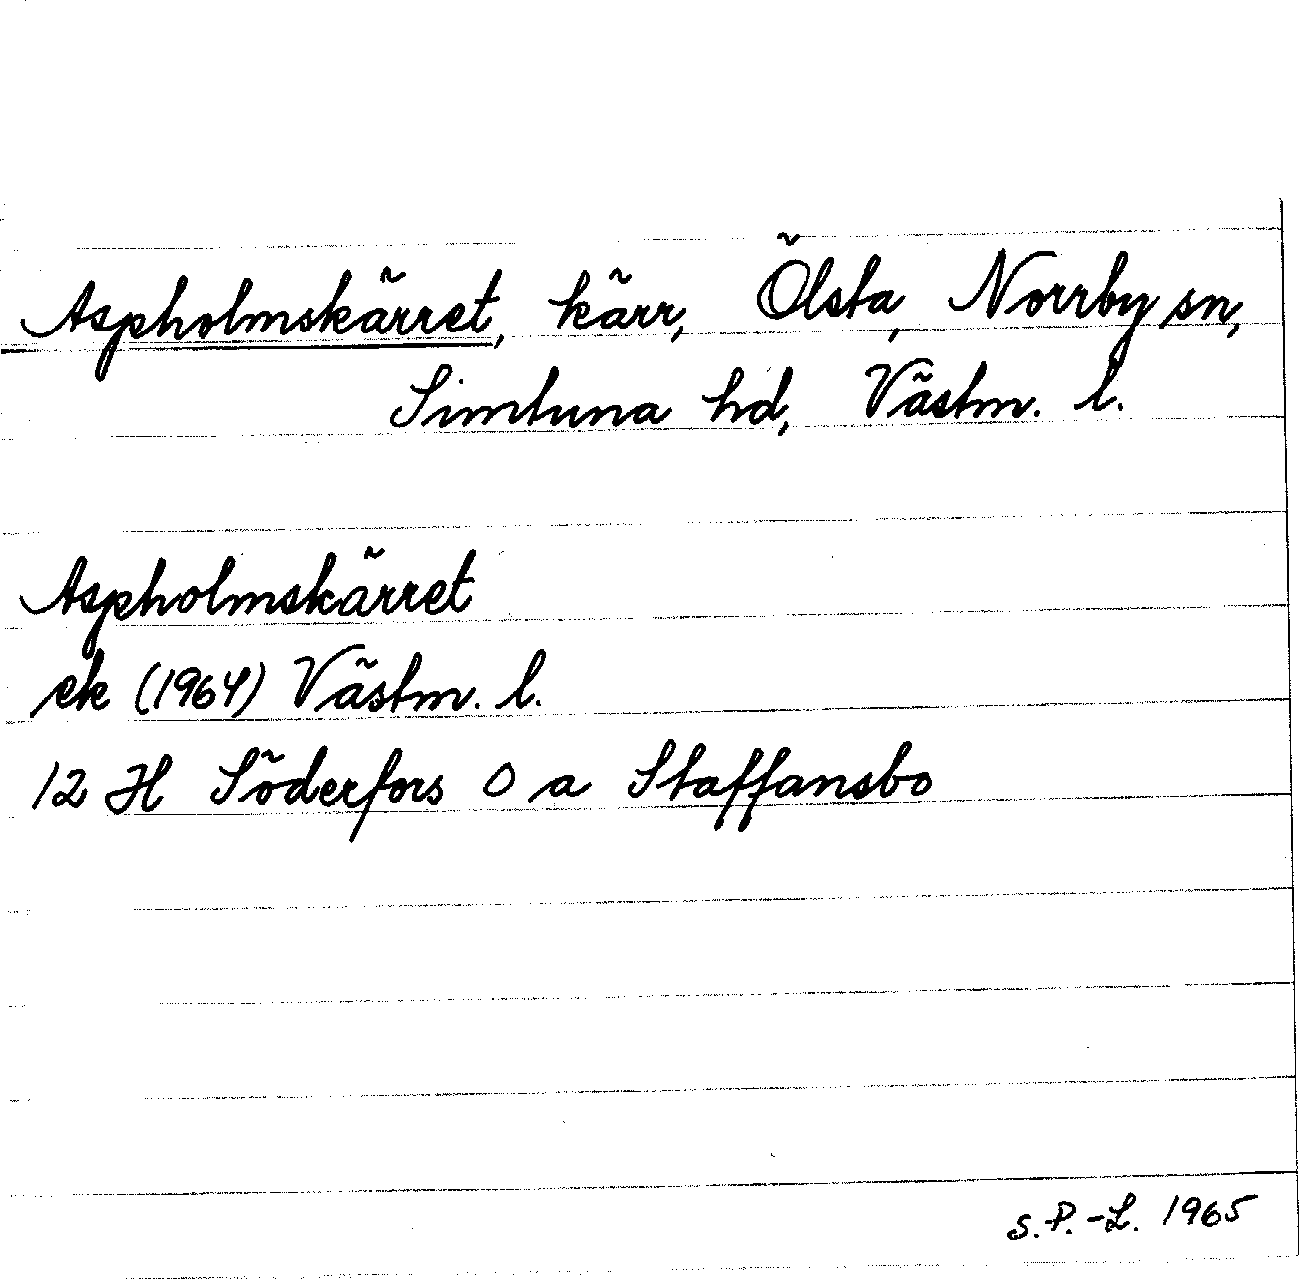 Aspholmskärret, kärr, Ölsta, Norrby sn,
Simtuna hd, Västm. l.
Aspholmskärret
ek (1964) Västm. l.
12 H Söderfors 0 a Staffansbo
S.P.-L. 1965